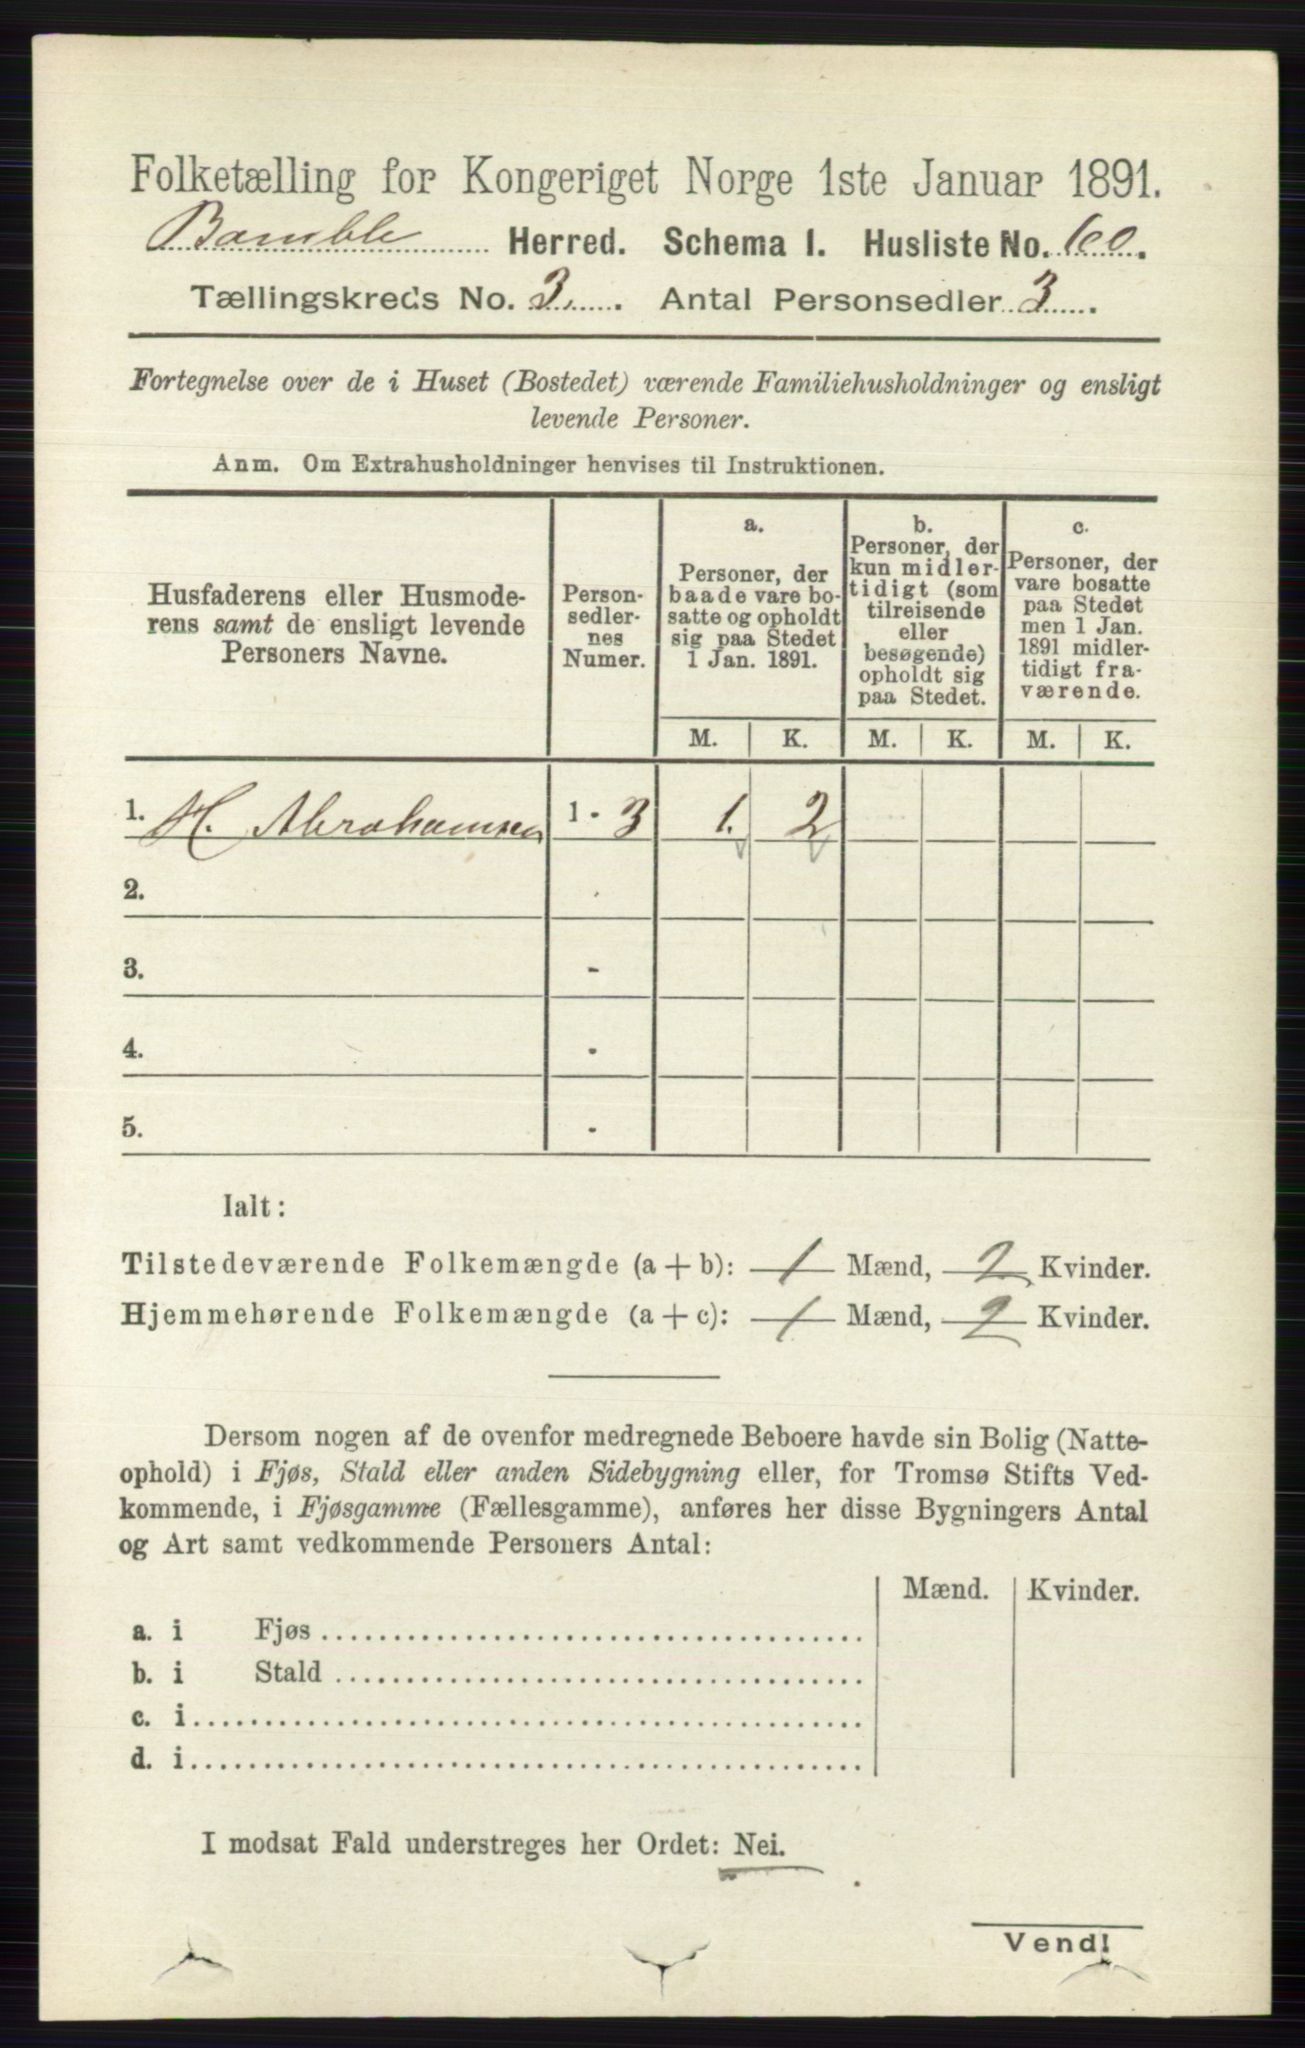 Folketælling for Kongeriget Norge 1ste Januar 1891.
Bamble Herred. Schema I. Husliste No. 100.
Tællingskreds No. 3. Antal Personsedler 3.
Fortegnelse over de i Huset (Bostedet) værende Familiehusholdninger og ensligt
levende Personer.
Anm. Om Extrahusholdninger henvises til Instruktionen.
Husfaderens eller Husmode-
rens samt de ensligt levende
Personers Navne.
Person-
sedler-
nes
Numer.
a.
Personer, der
baade vare bo-
satte og opholdt
sig paa Stedet
1 Jan. 1891.
b.
Personer, der
kun midler-
tidigt (som
tilreisende
eller
besøgende)
opholdt sig
paa Stedet.
c.
Personer, der
vare bosatte
paa Stedet
men 1 Jan.
1891 midler-
tidigt fra-
værende.
M. K. M. K. M. K.
1. H. Abrahamsen 1 - 3 1. 2
2.
3. -
4. -
5. -
Ialt:
Tilstedeværende Folkemængde (a + b): 1 Mænd, 2 Kvinder.
Hjemmehørende Folkemængde (a + c): 1 Mænd, 2 Kvinder.
Dersom nogen af de ovenfor medregnede Beboere havde sin Bolig (Natte-
ophold) i Fjøs, Stald eller anden Sidebygning eller, for Tromsø Stifts Ved-
kommende, i Fjøsgamme (Fællesgamme), anføres her disse Bygningers Antal
og Art samt vedkommende Personers Antal:
Mænd. Kvinder.
a. i Fjøs
b. i Stald
c. i
d. i
I modsat Fald understreges her Ordet: Nei.
Vend!